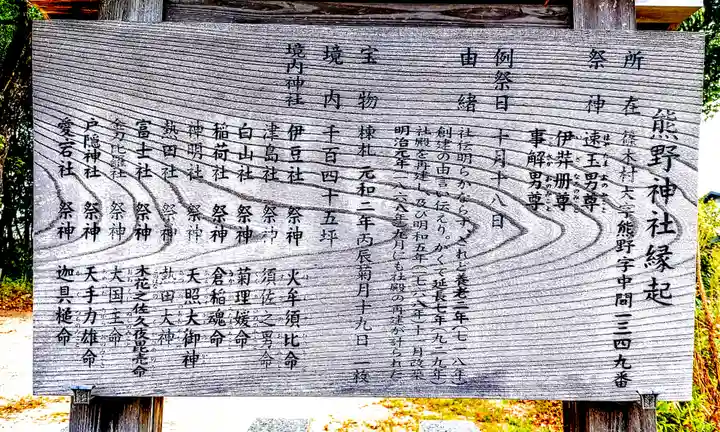 熊野神社縁起
所在 篠木村大字熊野字中間一三四九番
祭神 速玉男尊
伊弉册尊
事解男尊
例祭日 十月十八日
由緒 社伝明らかならず、されど養老二年(七一八年)
創建の由言い伝えり。かくて延長七年(九二九年)
社殿を再建し、及び明和五年(七六八年)十一月改築
明治元年(一八六八年)九月にも社殿の再建が計られた
宝物 棟札 元和二年丙辰菊月十九日 一枚
境内 千百四十五坪
境内神社 伊豆社 祭神 火牟須比命
津島社 祭神 須佐之男命
白山社 祭神 菊理媛命
稲荷社 祭神 倉稲魂命
神明社 祭神 天照大御神
熱田社 祭神 熱田大神
富士社 祭神 木花之佐久夜毘売命
金刀比羅社 祭神 大国主命
戸隠神社 祭神 天手力雄命
愛宕社 祭神 迦具槌命